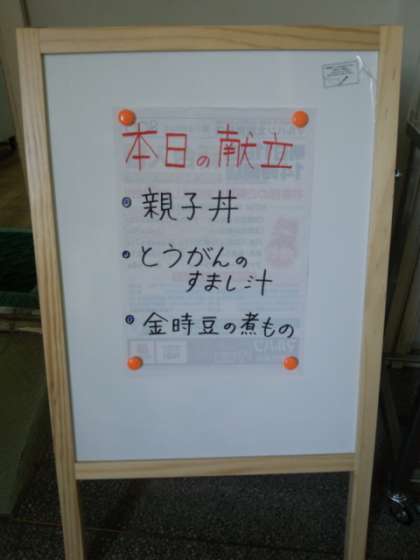 本日の献立
親子丼
とうがんの
すまし汁
金時豆の煮もの